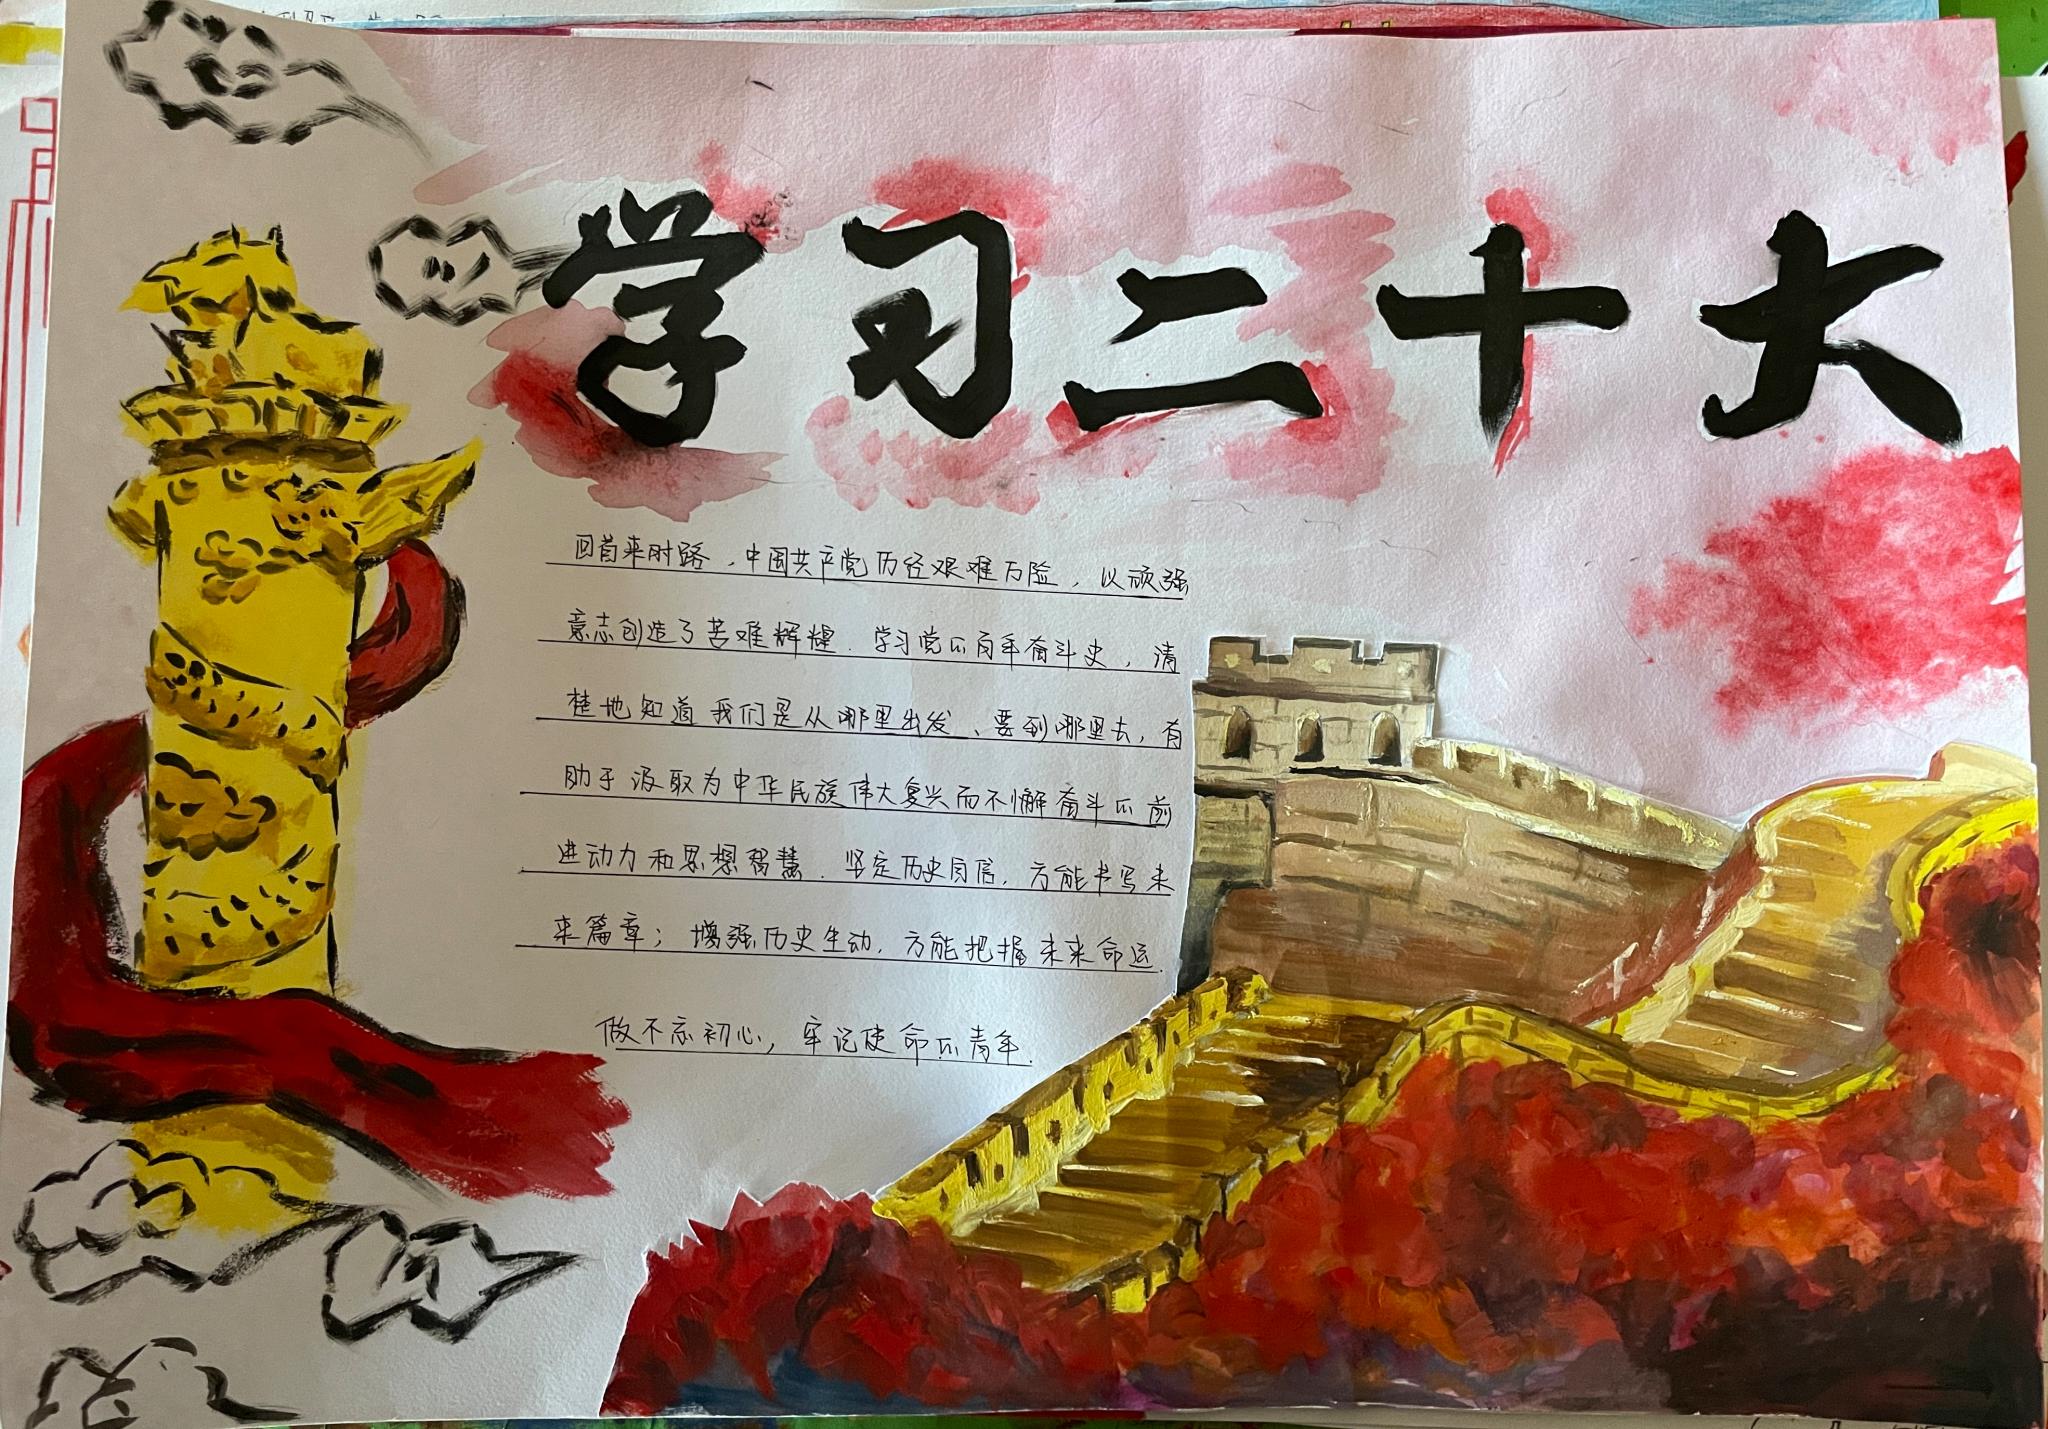 学习二十大
回首来时路，中国共产党历经艰难万险，以顽强
意志创造了苦难辉煌．学习党的百年奋斗史，清
楚地知道我们是从哪里出发、要到哪里去，有
助于汲取为中华民族伟大复兴而不懈奋斗的前
进动力和思想智慧．坚定历史自信，方能书写未
来篇章；增强历史生动，方能把握未来命运．
做不忘初心，牢记使命的青年．